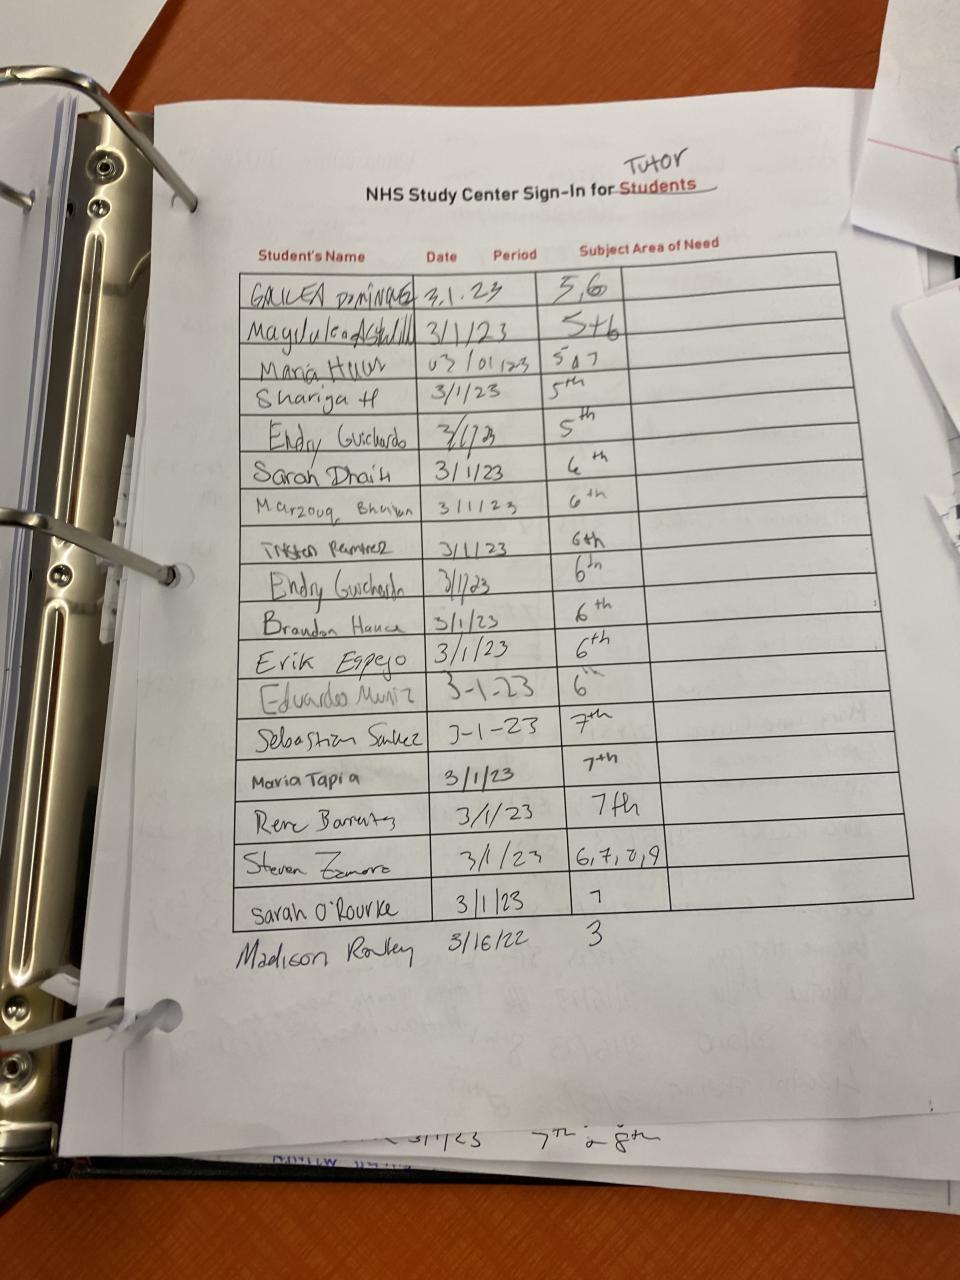 Tutor
NHS Study Center Sign-In for Students
Student's Name Date Period Subject Area of Need
GALILEA DOMINGUEZ 3.1.23 5,6
3/1/23 5+6
Maria 03/01/23 5 a 7
Shariga H 3/1/23 5th
Endry Guichardo 3/1/23 5th
Sarah Dhaiti 3/1/23 6th
Marzouq Bhuiyan 3/1/23 6th
Tristen Ramirez 3/1/23 6th
Endry Guichardo 3/1/23 6th
Brandon 3/1/23 6th
Erik Espejo 3/1/23 6th
Eduardo Muniz 3-1-23 6
Sebastian Sanchez 3-1-23 7th
Maria Tapia 3/1/23 7th
Rene 3/1/23 7th
Steven Zamora 3/1/23 6,7,8,9
Sarah O'Rourke 3/1/23 7
Madison Rowley 3/16/22 3
3/1/23 7th 8th